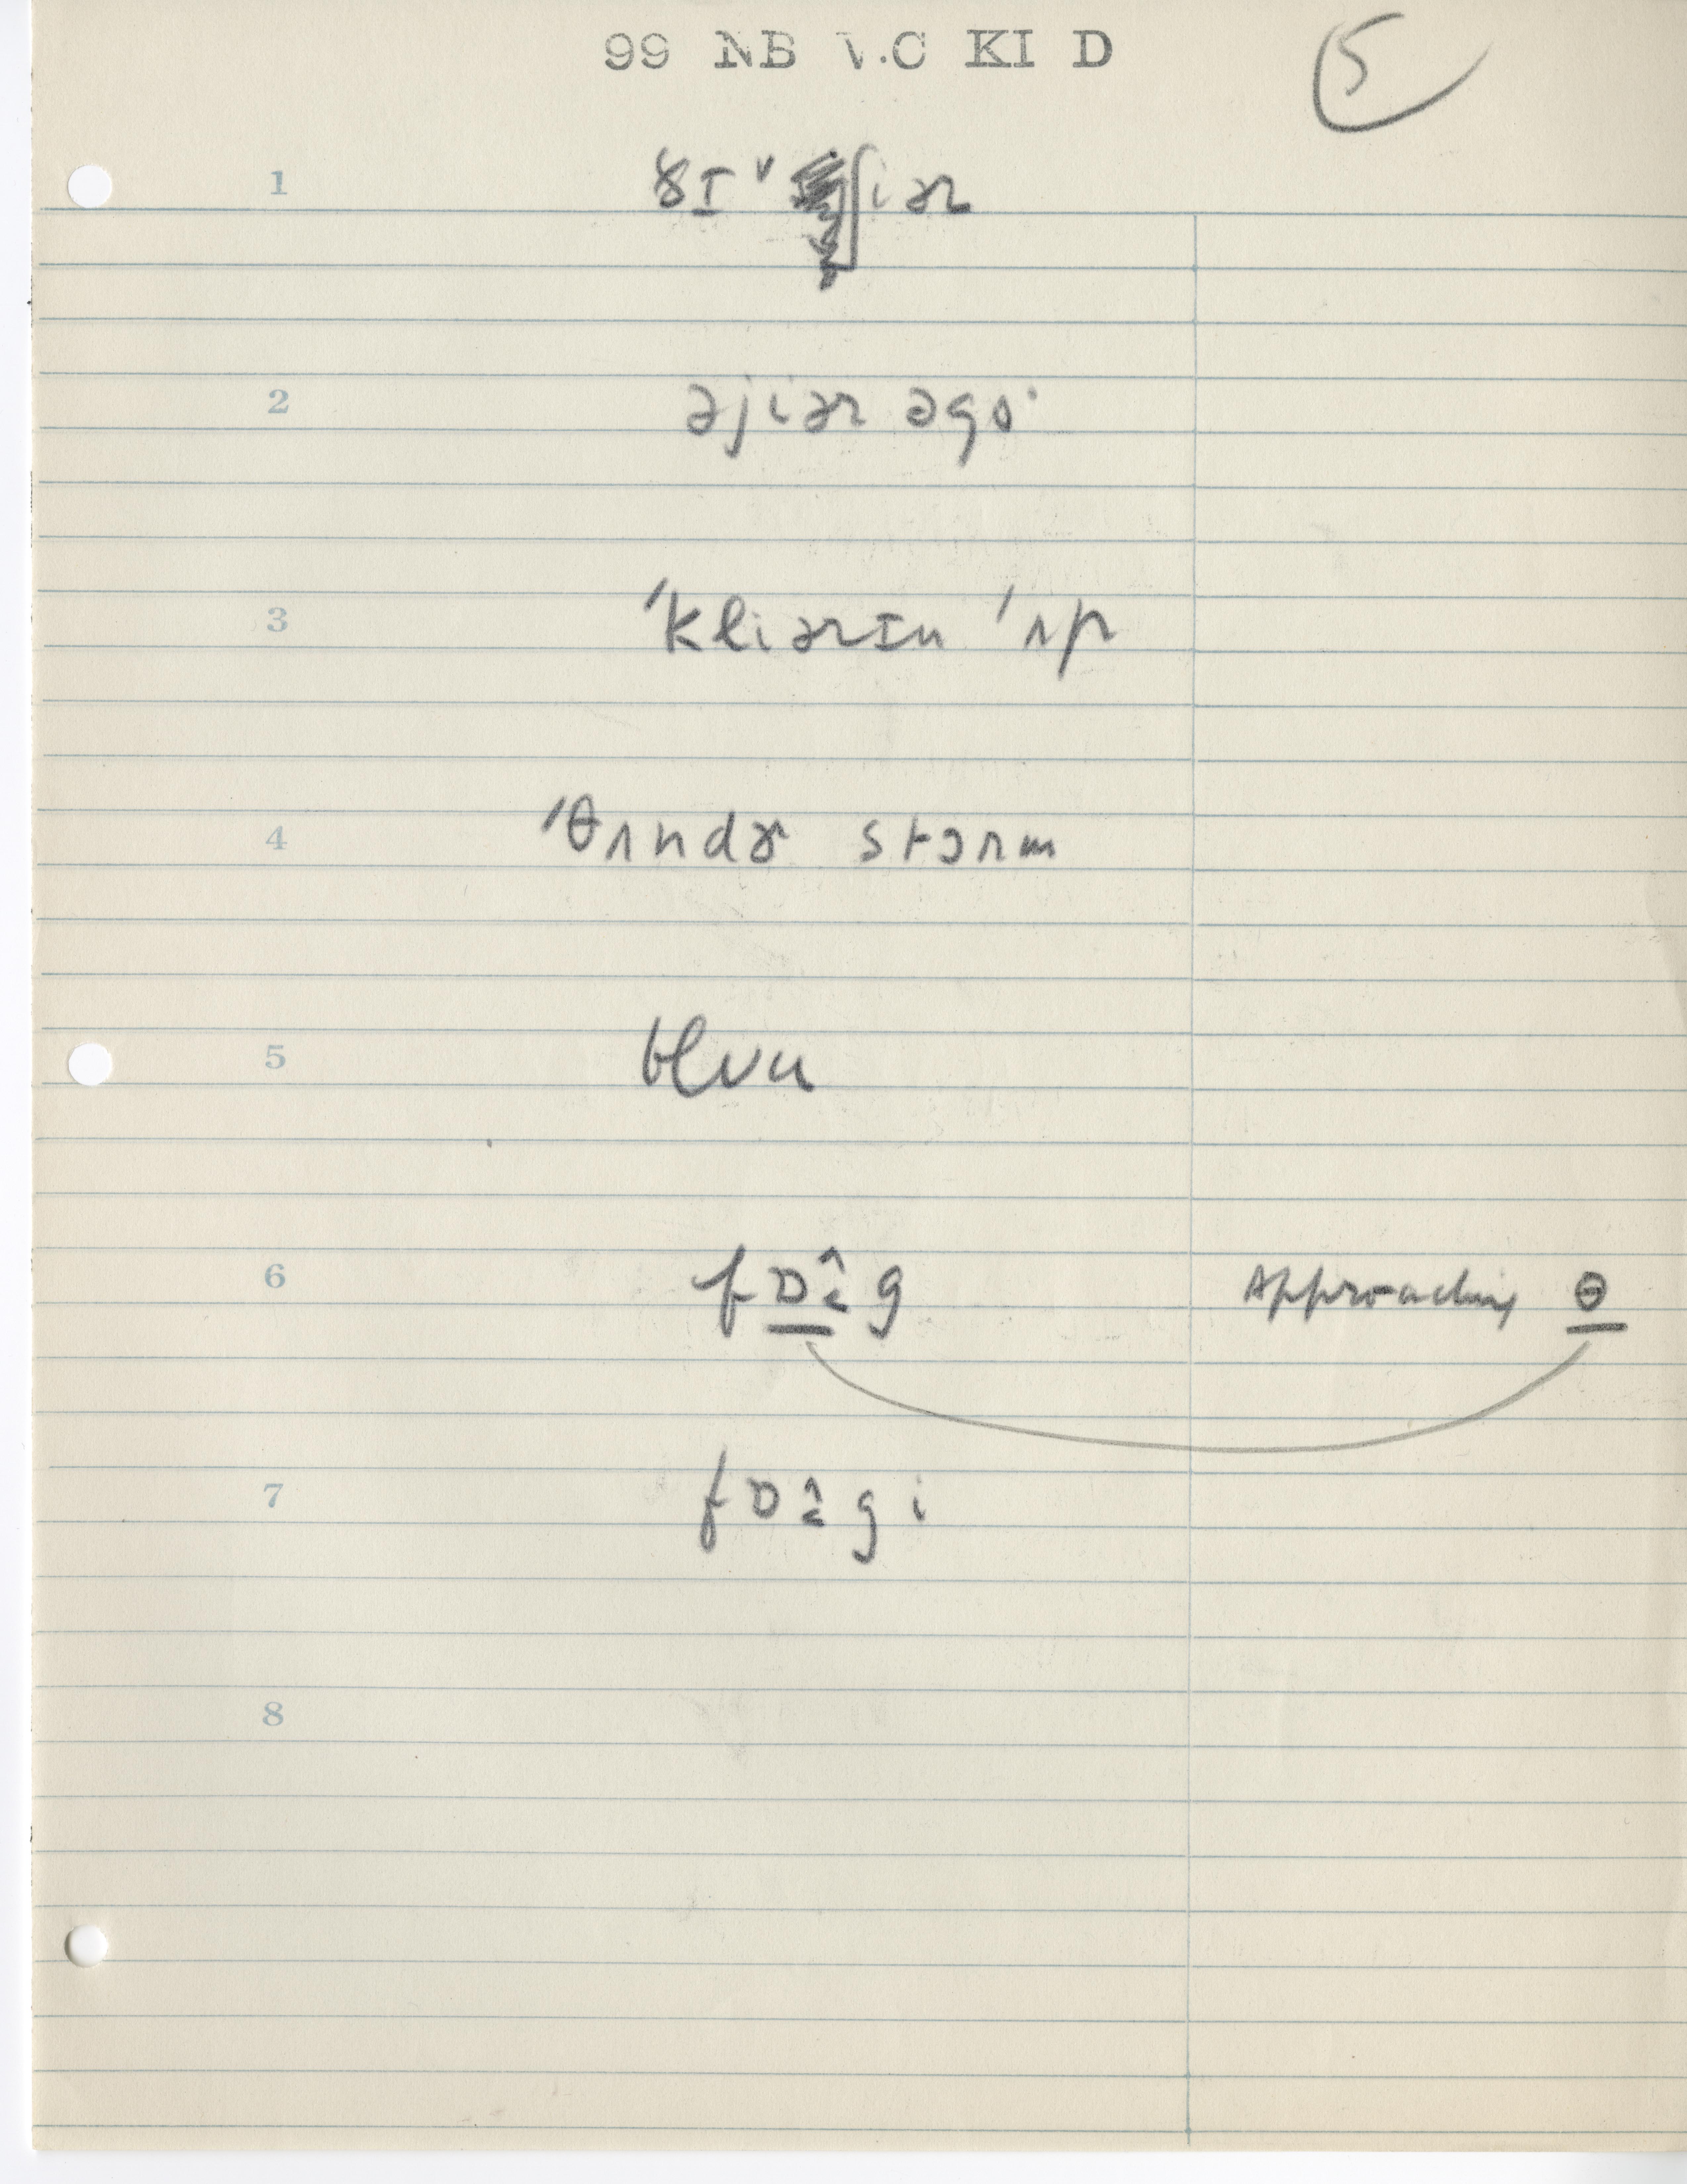 99 NB V.C KI D
5
1 ðɪˇ ʃiər
2 əjiər əgo·
3 ˈkliərɪn ˈʌp
4 ˈθʌndɚ stɔrm
5 blu
6 fɒ̂g Approaching ɵ
7 fɒ̂gi
8